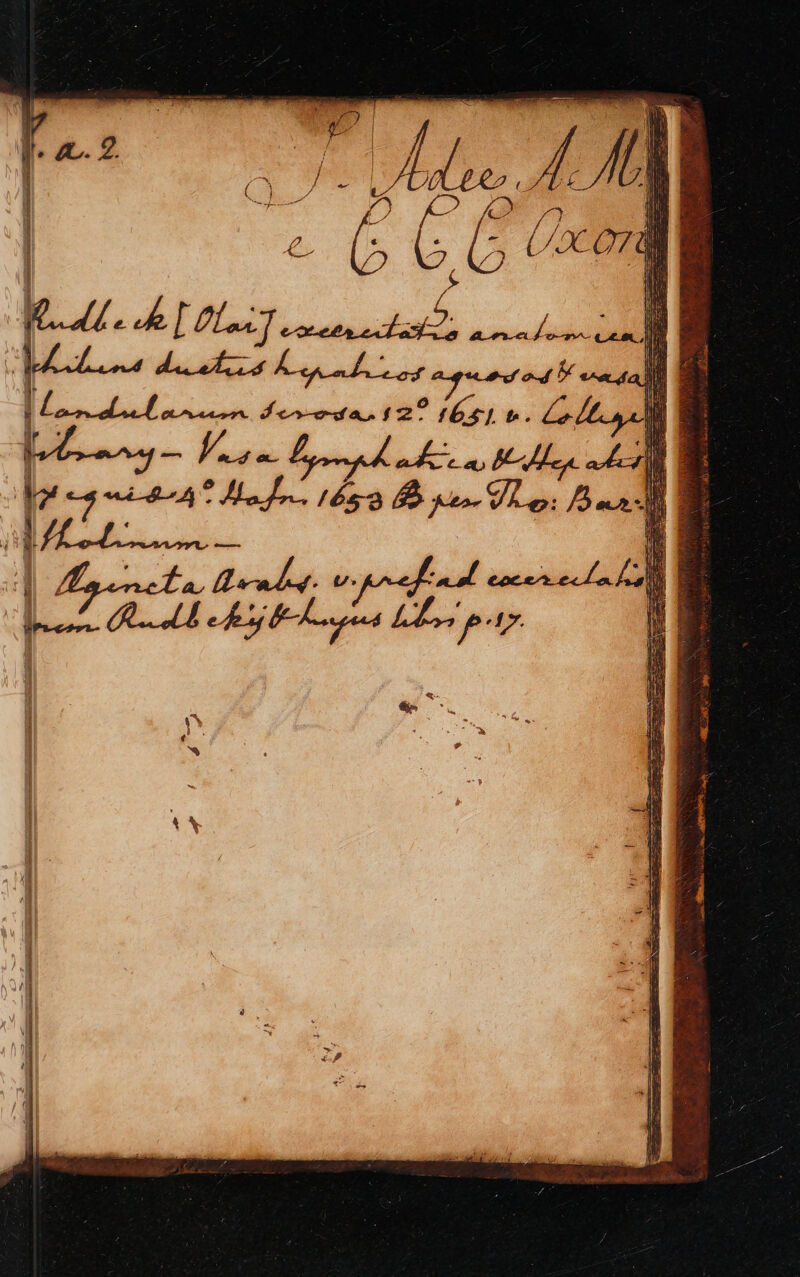 a. 2.
J. Adee A. M.
e C C C Oxon
Rudbeck [Olai] exercitatio anatomica,
exhibens ductus hepaticos aquosos & vasa
glandularum serosa. 12° 1651. v. College
Library – Vasa lymphatica, & Hepatis
4° Hafn. 1653 per Tho: Bar:
tholinum —
v. præf. ad exercitatio
nem Rudbekij & hujus libri p. 17.